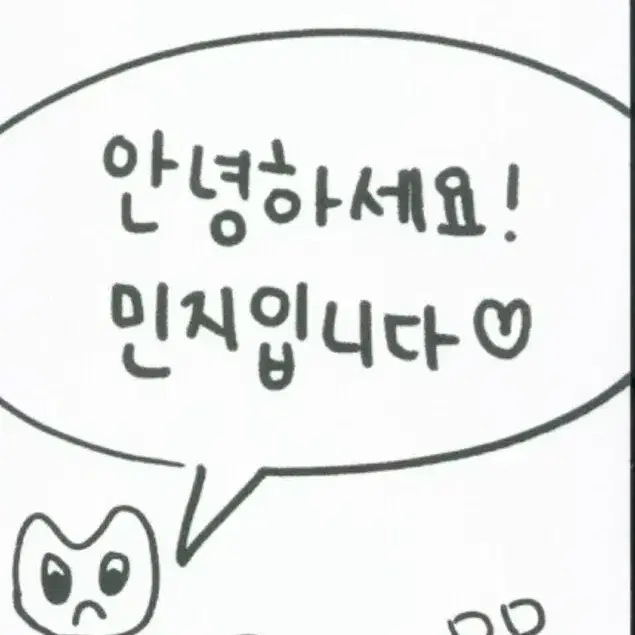 안녕하세요!
민지입니다♡